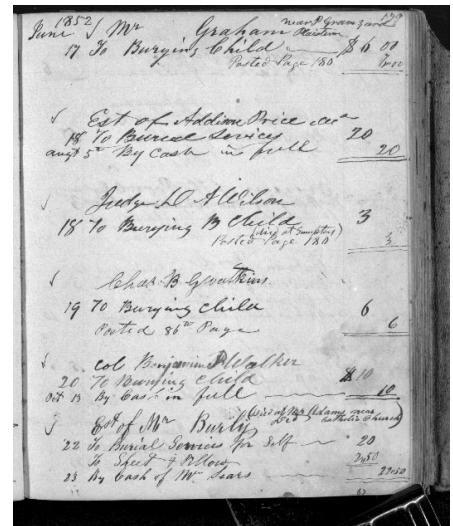 1852 179
June Mr Graham near
17 To Burying Child $ 6 00
Posted Page 180
Est of Addison Price
18 To Burial Services 20
augt 5th By Cash in full 20
Judge D A Wilson
18 To Burying B Child 3
(died at Sumpters)
Posted Page 180 3
Chas B Gwatkins
19 To Burying child 6
Posted 86th Page 6
col Benjamin P Walker
20 To Burying Child $ 10
Oct 13 By Cash in full 10
Est of Mr Burly Died at Mr Adams near Catholic Church
22 To Burial Services for Self 20
To Sheet & Pillow 2.50
23 By Cash of Mr Sears 22.50